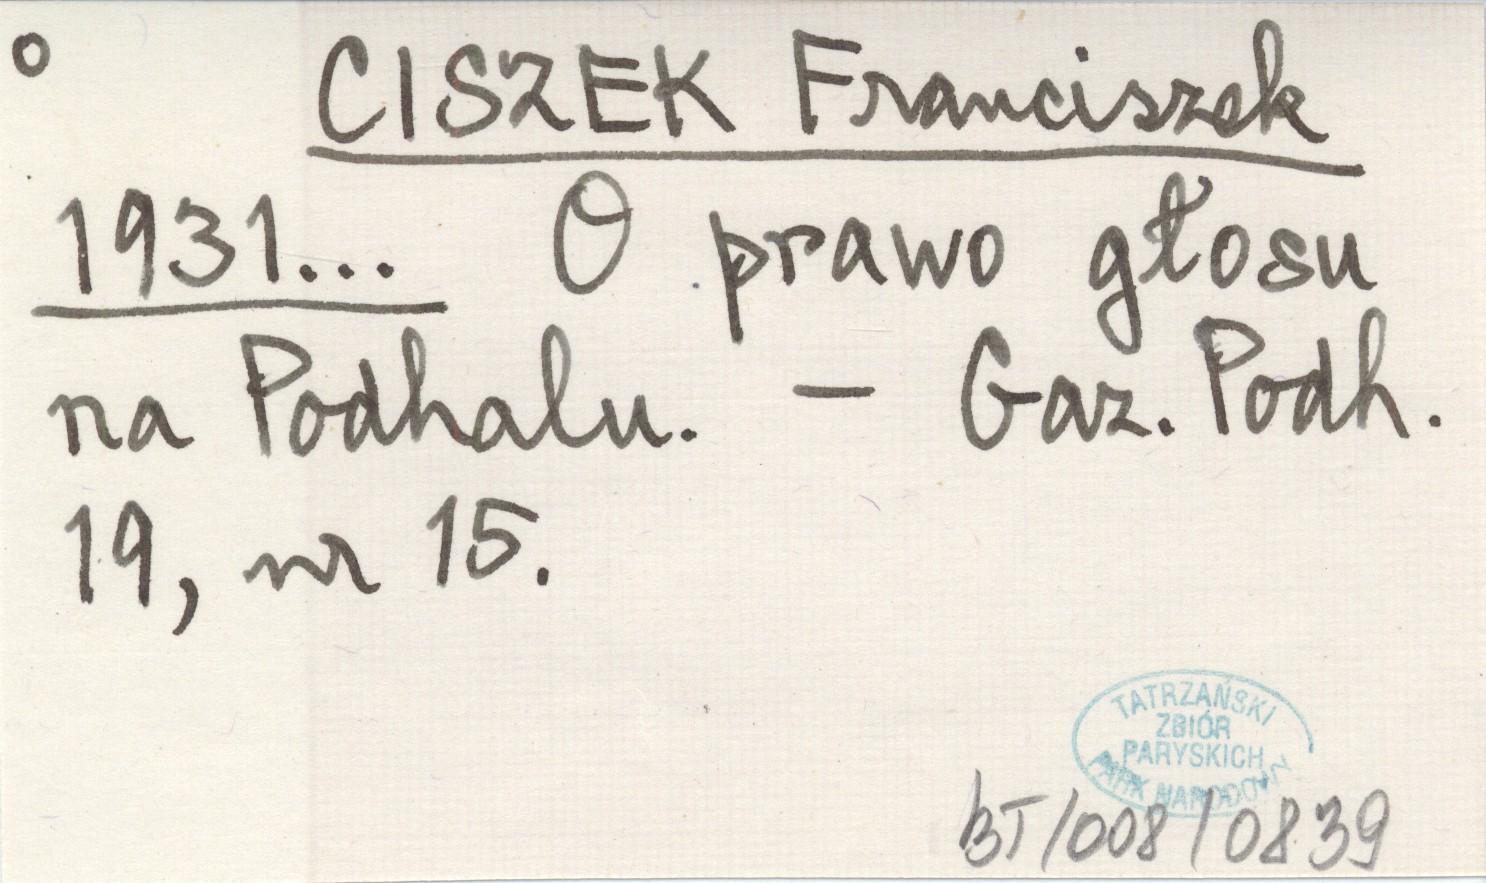 o CISZEK Franciszek
1931... O prawo głosu
na Podhalu. — Gaz. Podh.
19, nr 15.
TATRZAŃSKI
ZBIÓR
PARYSKICH
PARK NARODOWY
BT/008/0839